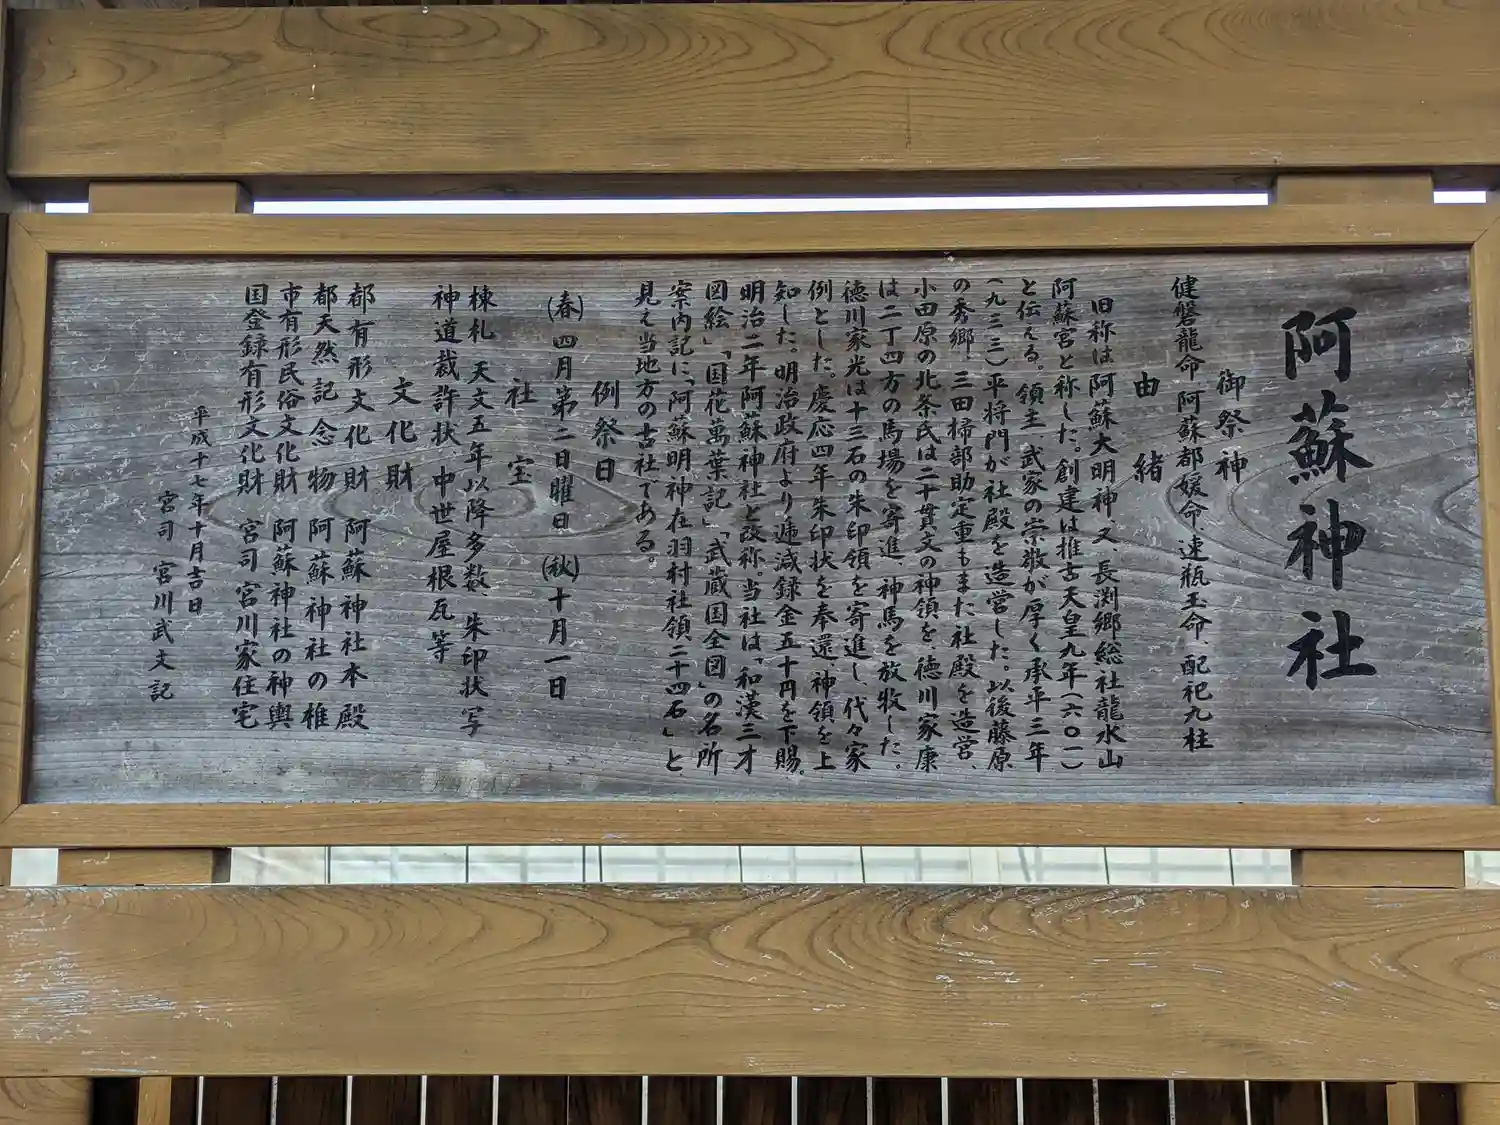 阿蘇神社
御祭神
健磐龍命、阿蘇都媛命、速瓶玉命、配祀九柱
由緒
旧称は阿蘇大明神、又、長渕郷総社龍水山
阿蘇宮と称した。創建は推古天皇九年(六〇一)
と伝える。領主、武家の崇敬が厚く承平三年
(九三三)平将門が社殿を造営した。以後藤原
の秀郷、三田掃部助定重もまた社殿を造営、
小田原の北条氏は二十貫文の神領を、徳川家康
は二丁四方の馬場を寄進、神馬を放牧した。
徳川家光は十三石の朱印領を寄進し、代々家
例とした。慶応四年朱印状を奉還、神領を上
知した。明治政府より逓減録金五十円を下賜。
明治二年阿蘇神社と改称。当社は、「和漢三才
図絵」「国花萬葉記」「武蔵国全図」の名所
案内記に、「阿蘇明神在羽村社領二十四石」と
見え当地方の古社である。
例祭日
(春)四月第二日曜日 (秋)十月一日
社宝
棟札 天文五年以降多数、朱印状写
神道裁許状、中世屋根瓦等
文化財
都有形文化財 阿蘇神社本殿
都天然記念物 阿蘇神社の椎
市有形民俗文化財 阿蘇神社の神輿
国登録有形文化財 宮司 宮川家住宅
平成十七年十月吉日
宮司 宮川武文記